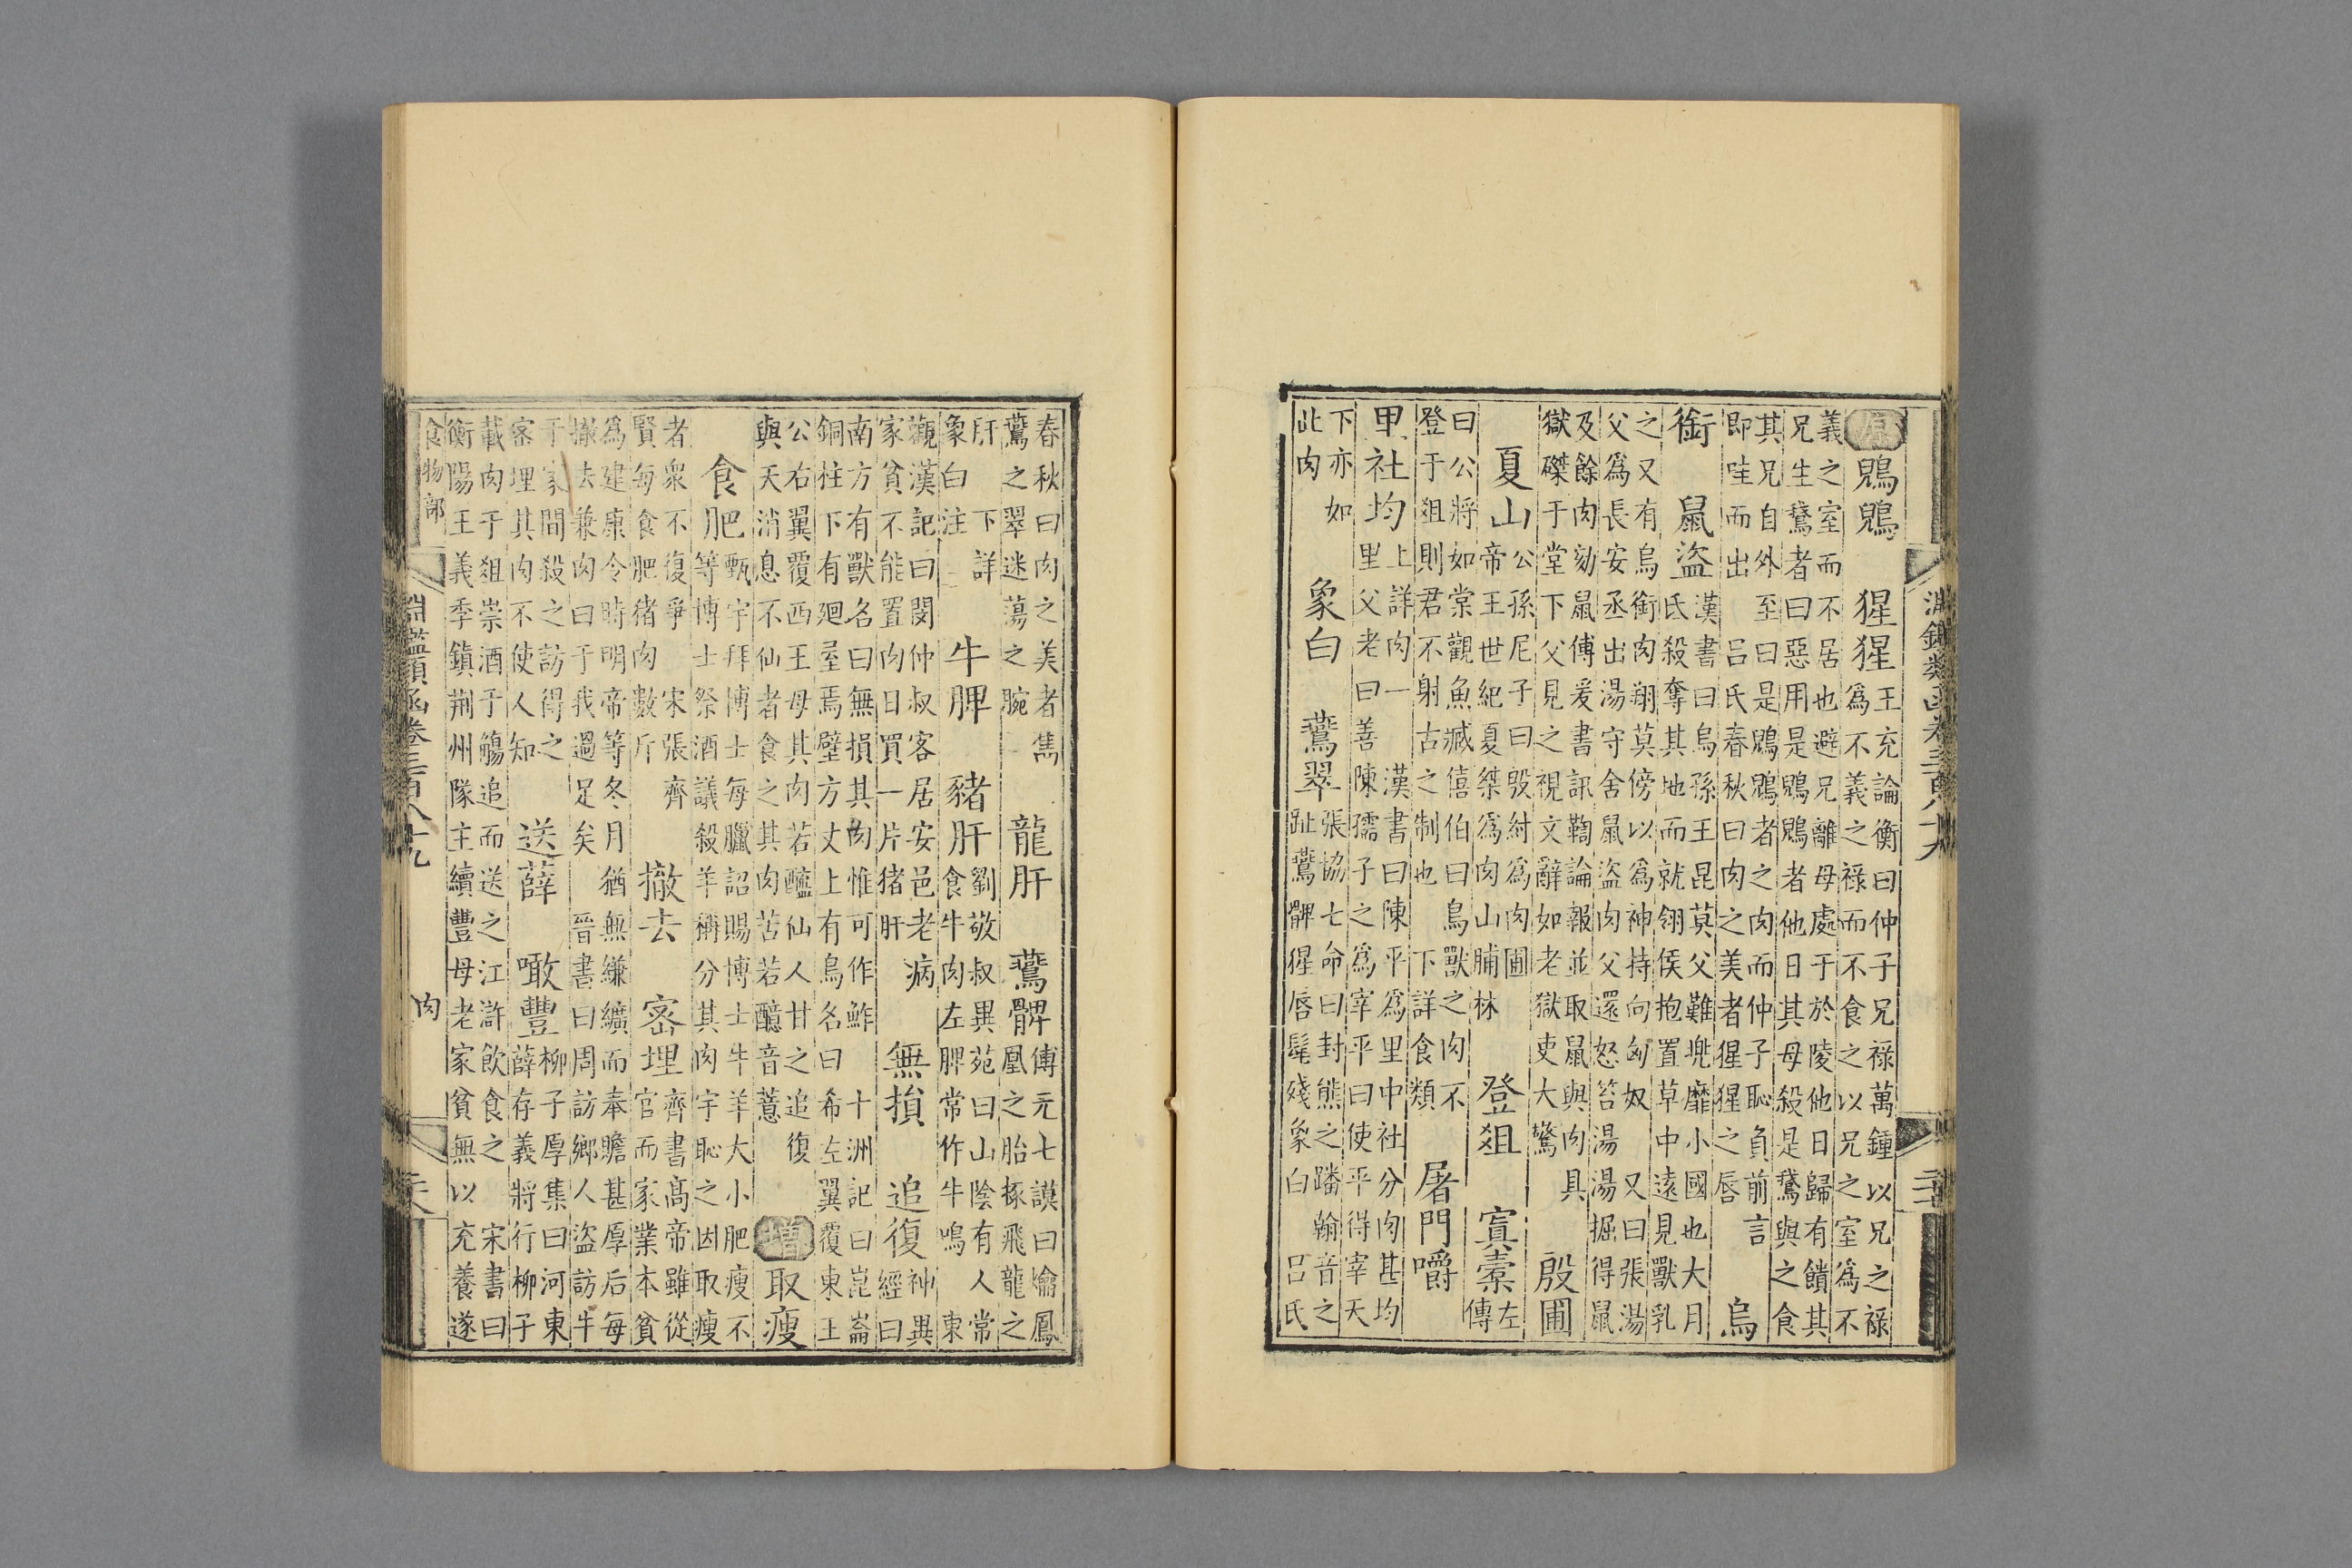 淵鑑類函卷三百八十九
原 鶃鶃 猩猩 王充論衡曰仲子兄祿萬鍾以兄之祿為不義之祿而不食之以兄之室為不
義之室而不居也避兄離母處于於陵他日歸有饋其兄生鵞者曰惡用是鶃鶃者他日其母殺是鵞與之食
其兄自外至曰是鶃鶃者之肉而仲子恥負前言即哇而出 呂氏春秋曰肉之美者猩猩之唇 烏
銜 鼠盜 漢書曰烏孫王昆莫父難兠靡小國也大月氏殺奪其地而就翎侯抱置草中遠見獸乳
之又有烏銜肉翔莫傍以為神持向匈奴 又曰張湯父為長安丞出湯守舍鼠盜肉父還怒笞湯湯掘得鼠
及餘肉劾鼠傅爰書訊鞫論報並取鼠與肉具獄磔于堂下父見之視文辭如老獄吏大驚 殷圃
夏山 公孫尼子曰殷紂為肉圃帝王世紀夏桀為肉山脯林 登俎 寘橐 左傳
曰公將如棠觀魚臧僖伯曰鳥獸之肉不登于俎則君不射古之制也 下詳食類 屠門嚼
甲社均 上詳肉一 漢書曰陳平為里中社分肉甚均里父老曰善陳孺子之為宰平曰使平得宰天
下亦如此肉 象白 鷰翠 張協七命曰封熊之蹯翰音之趾鷰髀猩唇髦殘象白 呂氏
春秋曰肉之美者雋鷰之翠述蕩之腕 龍肝 鷰髀 傅元七謨曰爚鳳凰之胎捺飛龍之
肝 下詳象白注 牛脾 豬肝 劉敬叔異苑曰山陰有人常食牛肉左脾常作牛鳴 東
觀漢記曰閔仲叔客居安邑老病家貧不能置肉日買一片猪肝 無損 追復 神異經曰
南方有獸名曰無損其肉惟可作鮓 十洲記曰崑崙銅柱下有廻屋焉壁方丈上有鳥名曰希左翼覆東王
公右翼覆西王母其肉若醯仙人甘之追復與天消息不仙者食之其肉苦若醷音薏 增 取瘦
食肥 甄宇拜博士每臘詔賜博士牛羊大小肥瘦不等博士祭酒議殺羊稱分其肉宇恥之因取瘦
者衆不復爭 宋張齊賢每食肥猪肉數斤 撤去 密埋 齊書高帝雖從官而家業本貧
為建康令時明帝等冬月猶無縑纊而奉贍甚厚后每撤去兼肉曰于我過足矣 晉書曰周訪鄉人盜訪牛
于家間殺之訪得之密埋其肉不使人知 送薛 噉豐 柳子厚集曰河東薛存義將行柳子
載肉于俎崇酒于觴追而送之江滸飲食之 宋書曰衡陽王義季鎮荆州隊主續豐母老家貧無以充養遂
食物部 淵鑑類函卷三百八十九 肉